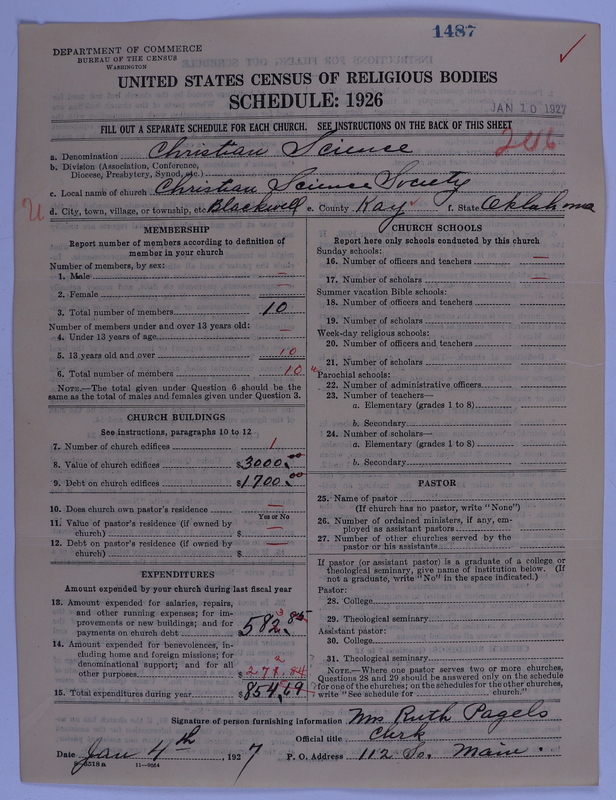 1487
DEPARTMENT OF COMMERCE
BUREAU OF THE CENSUS
WASHINGTON
UNITED STATES CENSUS OF RELIGIOUS BODIES
SCHEDULE: 1926
JAN 10 1927
FILL OUT A SEPARATE SCHEDULE FOR EACH CHURCH. SEE INSTRUCTIONS ON THE BACK OF THIS SHEET
a. Denomination Christian Science
b. Division (Association, Conference, Diocese, Presbytery, Synod, etc.)
c. Local name of church Christian Science Society
d. City, town, village, or township, etc. Blackwell e. County Kay f. State Oklahoma
MEMBERSHIP
Report number of members according to definition of
member in your church
Number of members, by sex:
1. Male —
2. Female —
3. Total number of members 10
Number of members under and over 13 years old:
4. Under 13 years of age —
5. 13 years old and over 10
6. Total number of members 10
NOTE.—The total given under Question 6 should be the
same as the total of males and females given under Question 3.
CHURCH BUILDINGS
See instructions, paragraphs 10 to 12
7. Number of church edifices 1
8. Value of church edifices $3000.00
9. Debt on church edifices $1700.00
10. Does church own pastor's residence —
Yes or No
11. Value of pastor's residence (if owned by
church) $ —
12. Debt on pastor's residence (if owned by
church) $ —
EXPENDITURES
Amount expended by your church during last fiscal year
13. Amount expended for salaries, repairs,
and other running expenses; for im-
provements or new buildings; and for
payments on church debt 582.85
14. Amount expended for benevolences, in-
cluding home and foreign missions; for
denominational support; and for all
other purposes $ 271.84
15. Total expenditures during year $854.69
CHURCH SCHOOLS
Report here only schools conducted by this church
Sunday schools:
16. Number of officers and teachers —
17. Number of scholars —
Summer vacation Bible schools:
18. Number of officers and teachers
19. Number of scholars
Week-day religious schools:
20. Number of officers and teachers
21. Number of scholars
Parochial schools:
22. Number of administrative officers
23. Number of teachers—
a. Elementary (grades 1 to 8)
b. Secondary
24. Number of scholars—
a. Elementary (grades 1 to 8)
b. Secondary
PASTOR
25. Name of pastor
(If church has no pastor, write "None")
26. Number of ordained ministers, if any, em-
ployed as assistant pastors
27. Number of other churches served by the
pastor or his assistants
If pastor (or assistant pastor) is a graduate of a college or
theological seminary, give name of institution below. (If
not a graduate, write "No" in the space indicated.)
Pastor:
28. College
29. Theological seminary
Assistant pastor:
30. College
31. Theological seminary
NOTE.—Where one pastor serves two or more churches,
Questions 28 and 29 should be answered only on the schedule
for one of the churches; on the schedules for the other churches,
write "See schedule for church."
Signature of person furnishing information Mrs Ruth Pagels
Official title Clerk
Date Jan 4th, 1927 P. O. Address 112 So. Main.
11—9664